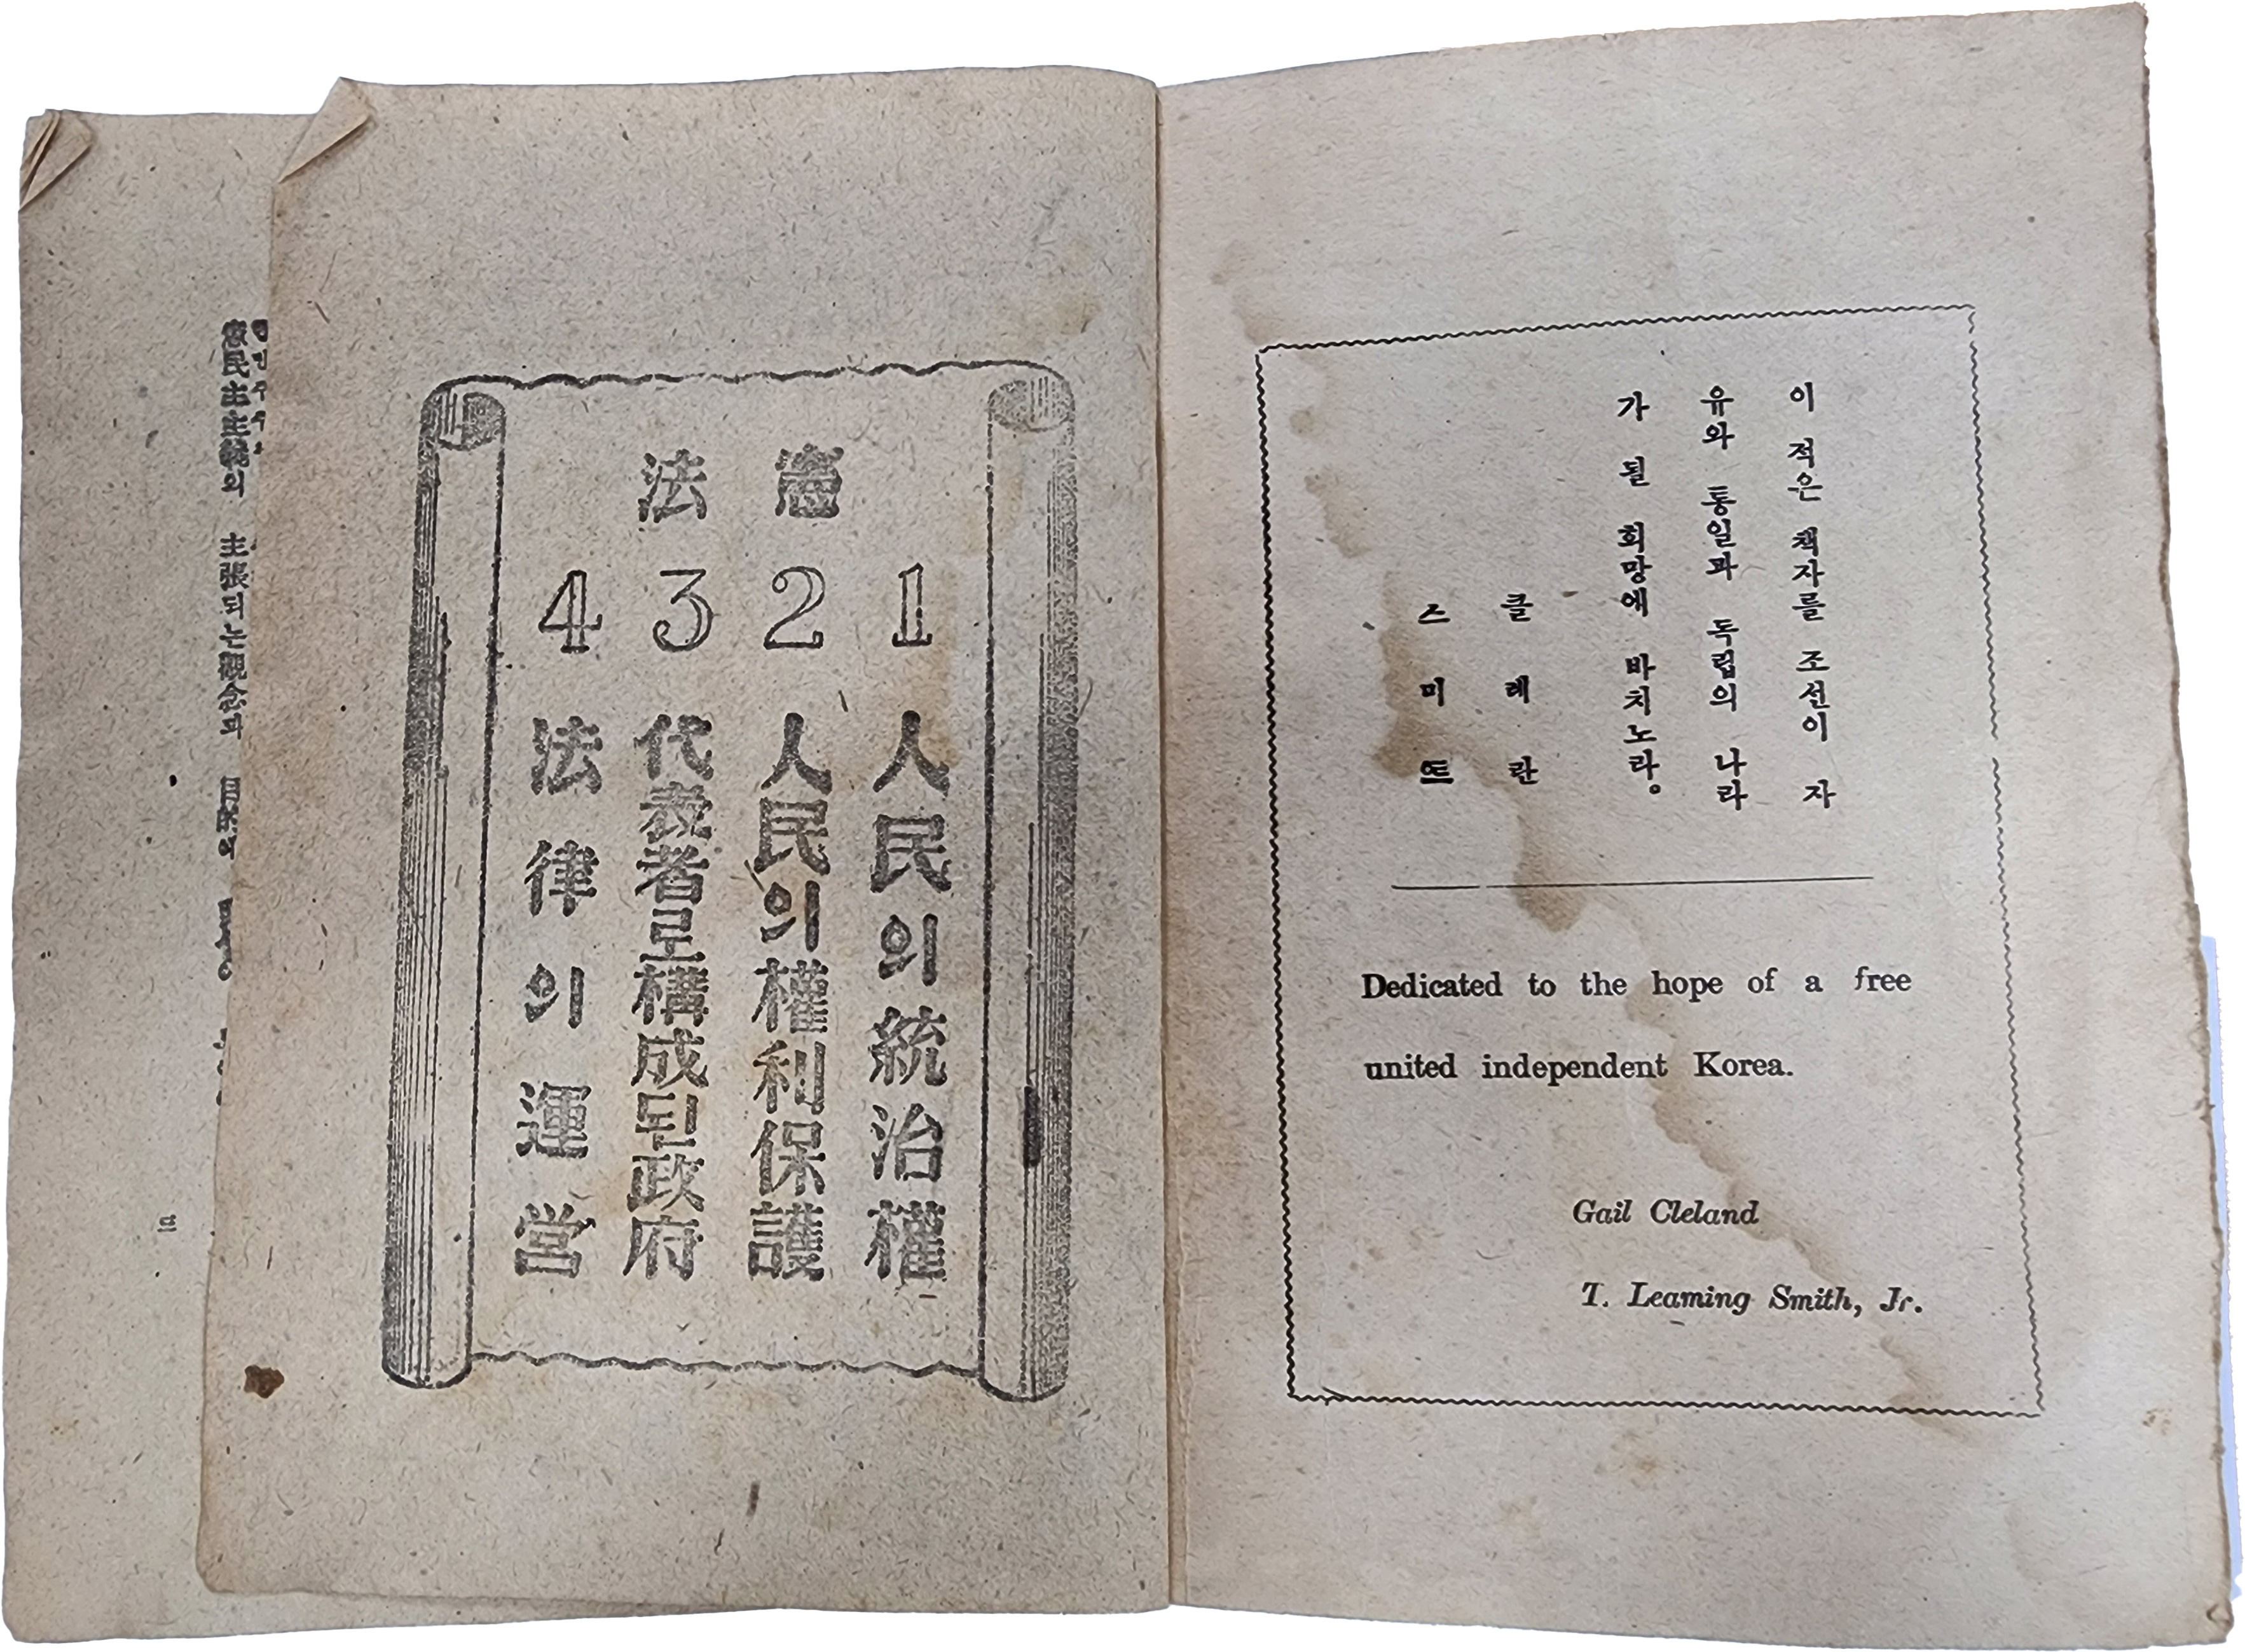 이 적은 책자를 조선이 자
유와 통일과 독립의 나라
가 될 희망에 바치노라。
클레란
스미뜨
Dedicated to the hope of a free
united independent Korea.
Gail Cleland
T. Leaming Smith, Jr.
憲法
1 人民의統治權
2 人民의權利保護
3 代表者로構成된政府
4 法律의運営
民主主義의 主張되는觀念과 目的의